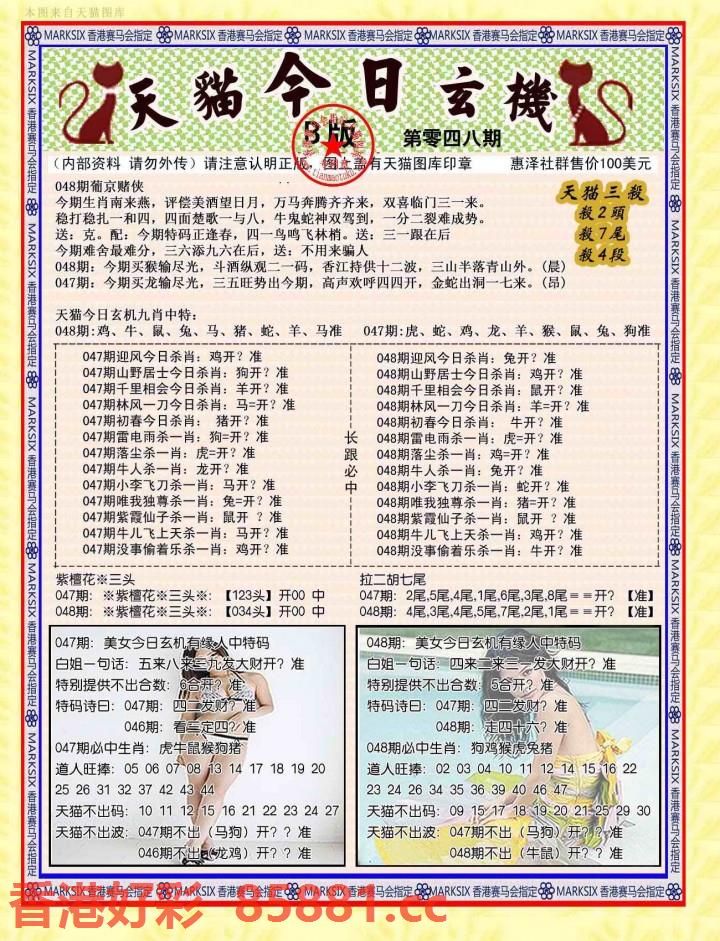 本图来自天猫图库
MARKSIX 香港赛马会指定 MARKSIX 香港赛马会指定 MARKSIX 香港赛马会指定 MARKSIX 香港赛马会指定 MARKSIX 香港赛马会指定
天貓今日玄機
B版 第零四八期
(内部资料 请勿外传)请注意认明正版，图上盖有天猫图库印章 惠泽社群售价100美元
048期葡京赌侠
今期生肖南来燕，评偿美酒望日月，万马奔腾齐齐来，双喜临门三一来。
稳打稳扎一和四，四面楚歌一与八，牛鬼蛇神双驾到，一分二裂难成势。
送：克。配：今期特码正逢春，四一鸟鸣飞林梢。送：三一跟在后
今期难舍最难分，三六添九六在后，送：不用来骗人
048期：今期买猴输尽光，斗酒纵观二一码，香江持供十二波，三山半落青山外。(晨)
047期：今期买龙输尽光，三五旺势出今期，高声欢呼四四开，金蛇出洞一七来。(昂)
天猫三殺
殺2頭
殺7尾
殺4段
天猫今日玄机九肖中特：
048期:鸡、牛、鼠、兔、马、猪、蛇、羊、马准 047期:虎、蛇、鸡、龙、羊、猴、鼠、兔、狗准
047期迎风今日杀肖：鸡开？准
047期山野居士今日杀肖：狗开？准
047期千里相会今日杀肖：羊开？准
047期林风一刀今日杀肖：马=开？准
047期初春今日杀肖： 猪开？准
047期雷电雨杀一肖：狗=开？准
047期落尘杀一肖：虎=开？准
047期牛人杀一肖：龙开？准
047期小李飞刀杀一肖：马开？准
047期唯我独尊杀一肖：兔=开？准
047期紫霞仙子杀一肖：鼠开 ？准
047期牛儿飞上天杀一肖：马开？准
047期没事偷着乐杀一肖：鸡开？准
长跟必中
048期迎风今日杀肖：兔开？准
048期山野居士今日杀肖：鸡开？准
048期千里相会今日杀肖：鼠开？准
048期林风一刀今日杀肖：羊=开？准
048期初春今日杀肖： 牛开？准
048期雷电雨杀一肖：虎=开？准
048期落尘杀一肖：鸡=开？准
048期牛人杀一肖：兔开？准
048期小李飞刀杀一肖：蛇开？准
048期唯我独尊杀一肖：猪=开？准
048期紫霞仙子杀一肖：鼠开 ？准
048期牛儿飞上天杀一肖：鸡开？准
048期没事偷着乐杀一肖：牛开？准
紫檀花※三头
047期：※紫檀花※三头※：【123头】开00 中
048期：※紫檀花※三头※：【034头】开00 中
拉二胡七尾
047期：2尾,5尾,4尾,1尾,6尾,3尾,8尾＝＝开？【准】
048期：4尾,3尾,4尾,5尾,7尾,2尾,1尾＝＝开？【准】
047期：美女今日玄机有缘人中特码
白姐一句话：五来八来三九发大财开？准
特别提供不出合数：6合开？准
特码诗曰：047期：四二发财？准
046期：看三定四？准
047期必中生肖：虎牛鼠猴狗猪
道人旺捧：05 06 07 08 13 14 17 18 19 20
25 26 31 32 37 42 43 44
天猫不出码：10 11 12 15 16 21 22 23 24 27
天猫不出波：047期不出（马狗）开？？准
046期不出（龙鸡）开？？准
048期：美女今日玄机有缘人中特码
白姐一句话：四来二来三一发大财开？准
特别提供不出合数：5合开？准
特码诗曰：047期：四二发财？准
048期：走四十六？准
048期必中生肖：狗鸡猴虎兔猪
道人旺捧：02 03 04 10 11 12 14 15 16 22
23 24 26 34 35 36 39 40 46 47
天猫不出码：09 15 17 18 19 20 21 25 29 30
天猫不出波：047期不出（马狗）开？？准
048期不出（牛鼠）开？？准
MARKSIX 香港赛马会指定 MARKSIX 香港赛马会指定 MARKSIX 香港赛马会指定 MARKSIX 香港赛马会指定 MARKSIX 香港赛马会指定
香港好彩 85881.cc